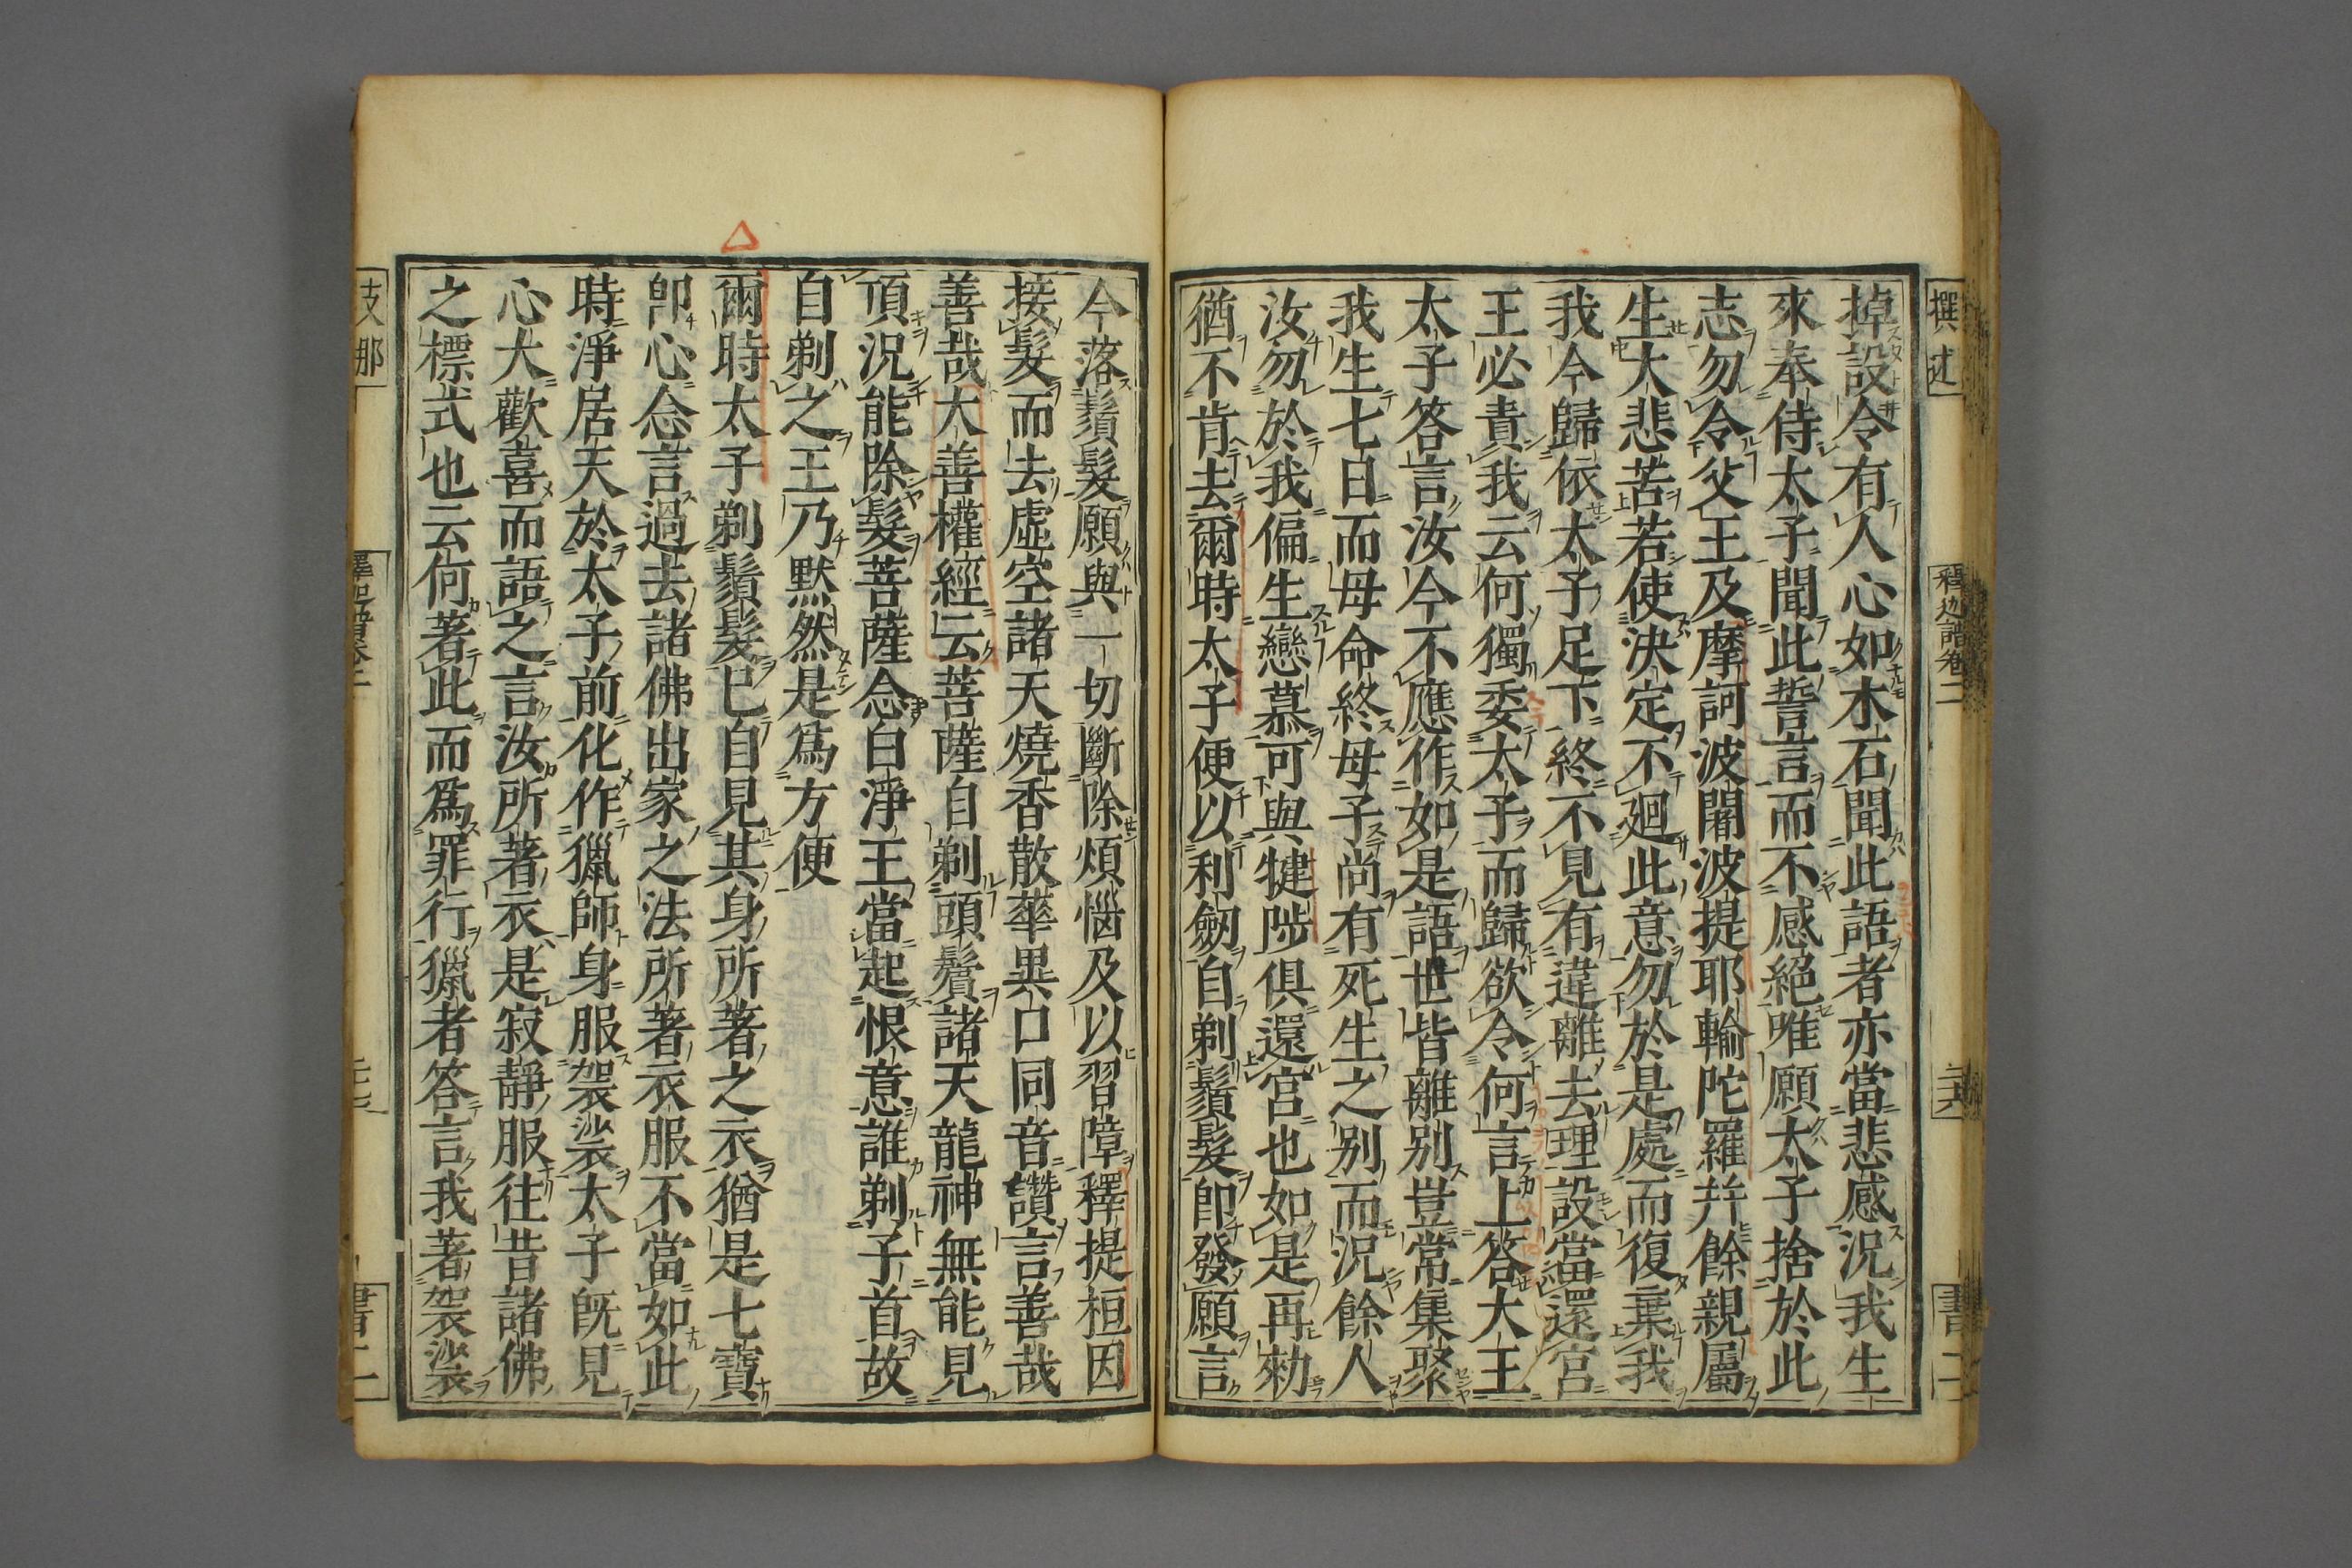 撰述
釋迦譜卷二
二六
書二
掉設令有人心如木石聞此語者亦當悲感況我生
來奉侍太子聞此誓言而不感絕唯願太子捨於此
志勿令父王及摩訶波闍波提耶輸陀羅并餘親屬
生大悲苦若使決定不迴此意勿於是處而復棄我
我今歸依太子足下終不見有違離去理設當還宮
王必責我云何獨委太子而歸欲令何言上答大王
太子答言汝今不應作如是語世皆離別豈常集聚
我生七日而母命終母子尚有死生之別而況餘人
汝勿於我偏生戀慕可與犍陟俱還宮也如是再勑
猶不肯去爾時太子便以利劒自剃鬚髮卽發願言
今落鬚髮願與一切斷除煩惱及以習障釋提桓因
接髮而去虛空諸天燒香散華異口同音讚言善哉
善哉大善權經云菩薩自剃頭鬚諸天龍神無能見
頂況能除髮菩薩念白淨王當起恨意誰剃子首故
自剃之王乃默然是爲方便
爾時太子剃鬚髮已自見其身所著之衣猶是七寶
卽心念言過去諸佛出家之法所著衣服不當如此
時淨居天於太子前化作獵師身服袈裟太子旣見
心大歡喜而語之言汝所著衣是寂靜服往昔諸佛
之標式也云何著此而爲罪行獵者答言我著袈裟
支那
釋迦譜卷二
二七
書二